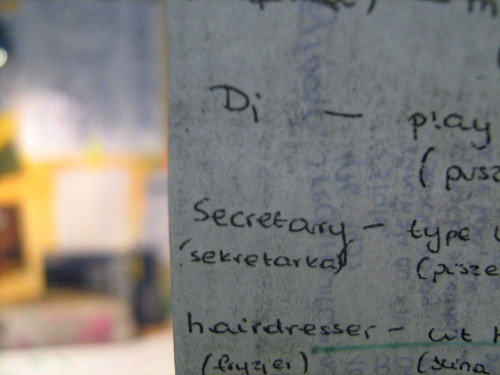 Dj — play
(pusz
Secretary - type
(sekretarka) (pisze
hairdresser - cut h
(fryzjer) (ścina